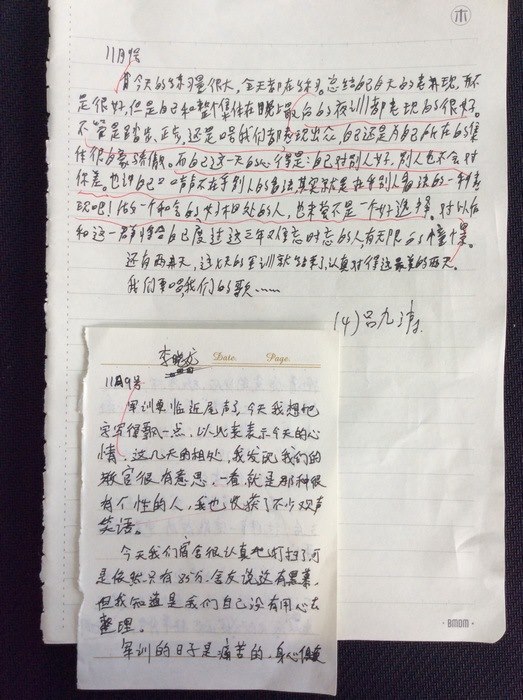 木
11月9号
今天的练习量很大,全天都在练习。总结自己白天的表现,不
是很好,但是自己和整个集体在晚上最后的夜训都表现的很好。
不管是踏步、正步,还是唱我们都表现出众,自己还是为自己所在的集
体很自豪骄傲。而自己这一天的心得是:自己对别人好,别人也不会对
你差。也许自己口口声声不在乎别人的看法,其实就是在乎别人看法的一种表
现吧!做一个和合的好相处的人,也未尝不是一个好选择。对以后
和这一群将给自己度过这三年难忘时光的人,有无限的憧憬。
还有两天,这次的军训就结束了,认真对待这最美的两天。
我们事唱我们的歌……
(4)吕九
李晓龙 Date. Page.
11月9号
军训要临近尾声了,今天我想把
字写得飘一点,以此来表示今天的心
情,这几天的相处,我发现我们的
教官很有意思,一看就是那种很
有个性的人,我也收获了不少欢声
笑语。
今天我们宿舍很认真地打扫了,可
是依然只有85分,舍友说这有黑幕,
但我知道是我们自己没有用心去
整理。
军训的日子是痛苦的,身心俱疲
BMDM